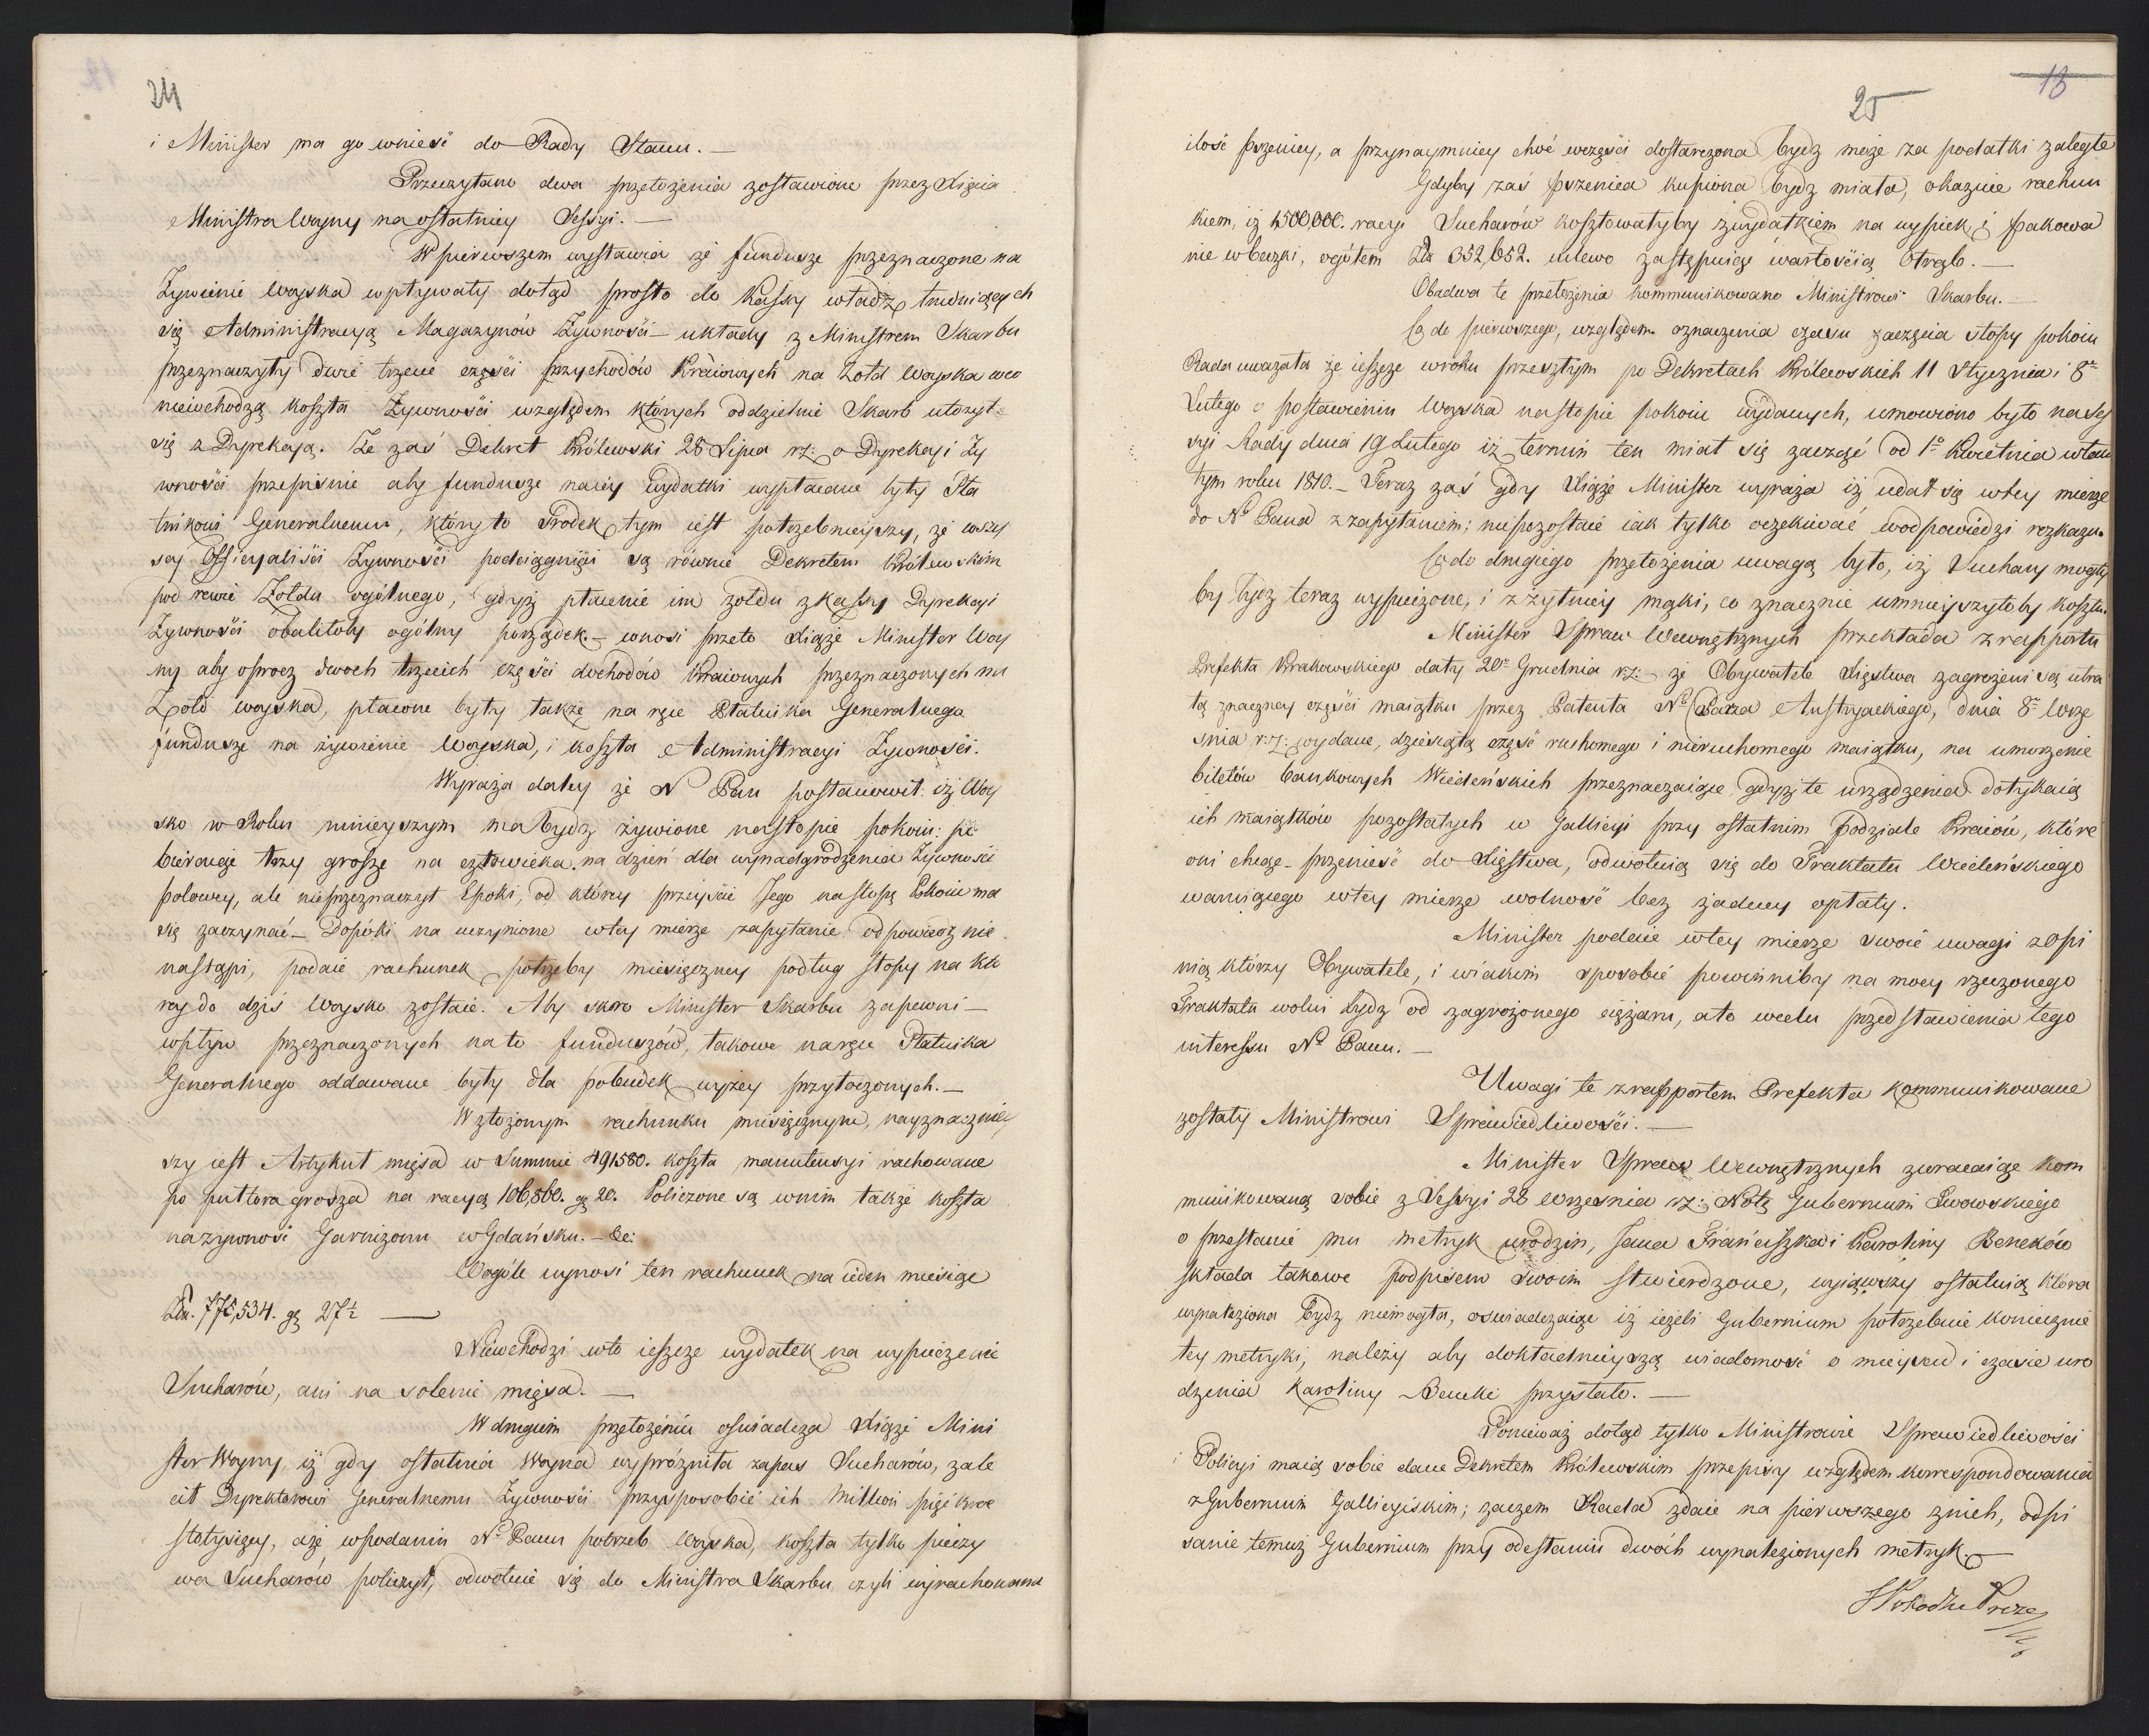 24
i Minister ma go wnieść do Rady Stanu. —
Przeczytano dwa przełożenia zostawione przez Xięcia
Ministra Woyny na ostatniey Sessyi. —
W pierwszem wystawia że fundusze przeznaczone na
Żywienie woyska wpływały dotąd prosto do Kassy władz trudniących
się Administracyą Magazynów Żywności — układy z Ministrem Skarbu
przeznaczyły dwie trzecie części przychodów Kraiowych na Żołd Woyska w co
niewchodzą koszta Żywności względem których oddzielnie Skarb ułożył
się z Dyrekcyą. Że zaś Dekret Królewski 25 Lipca r.z: o Dyrekcyi Ży
wności przepisuie aby fundusze na iéy wydatki wypłacane były Pła
tnikowi Generalnemu, który to środek tym iest potrzebnieyszy, że wszy
scy Officyaliści Żywności podciągnięci są równie Dekretem Królewskim
pod rewie Żołdu ogólnego, gdyż płacenie im żołdu z kassy Dyrekcyi
Żywności obaliłoby ogólny porządek. — wnosi przeto Xiąże Minister Woy
ny aby oprocz dwoch trzecich części dochodów Kraiowych przeznaczonych na
Żołd woyska, płacone były także na ręce Płatnika Generalnego
fundusze na żywienie Woyska, i koszta Administracyi Żywności.
Wyraża daléy że N Pan postanowił iż Woy
sko w Roku ninieyszym ma bydz żywione na stopie pokoiu: po
bieraiąc trzy grosze na człowieka na dzień dla wynadgrodzenia Żywności
polowey, ale nieprzeznaczył Epoki, od którey przeyście Jego na stopę Pokoiu ma
się zaczynać — Dopóki na uczynione w tey mierze zapytanie odpowiedz nie
nastąpi, podaie rachunek potrzeby miesięczney podług stopy na któ
rey do dziś Woysko zostaie. Aby skoro Minister Skarbu zapewni —
wpływ przeznaczonych na to funduszów, takowe na ręce Płatnika
Generalnego oddawane były dla pobudek wyżey przytoczonych. —
W złożonym rachunku miesięcznym, nayznaczniey
szy iest Artykuł mięsa w Summie 491580. koszta manutensyi rachowane
po puttora grosza na racyą 106,560. gr 20. Policzone są w nim także koszta
na żywność Garnizonu w Gdańsku. — &c:
Wogóle wynosi ten rachunek na ieden miesiąc
Złr. 775,534. gr 27½ —
Niewchodzi w to ieszcze wydatek na wypieczenie
Sucharów, ani na solenie mięsa. —
W drugim przełożeniu oświadcza Xiąże Mini
ster Woyny, iż gdy ostatnia Woyna wyprózniła zapas Sucharów, zale
cił Dyrektorowi Generalnemu Żywności przysposobić ich Million pięćkroć
stotysięcy, a że w podaniu N° Panu potrzeb woyska, koszta tylko pieczy
wa Sucharów policzył, odwołuie się do Ministra Skarbu czyli wyrachowana
18
25
ilość pszenicy, a przynaymniey choć wczęści dostarczona bydz może za podatki zaległe
Gdyby zaś pszenica kupiona bydz miała, okazuie rachun
kiem, iż 1500,000. racyi Sucharów kosztowałyby z wydatkiem na wypiek i pakowa
nie w beczki, ogółem Złr 352,652. mlewo zastępuiąc wartością Otręb. —
Obadwa te przełożenia kommunikowano Ministrowi Skarbu. —
Co do pierwszego, względem oznaczenia czasu zaczęcia stopy pokoiu
Rada uważała że ieszcze w roku przeszłym po Dekretach Królewskich 11 Stycznia i 8°
Lutego o postawieniu Woyska na stopie pokoiu wydanych, umowiono było na Ses
syi Rady dnia 19 Lutego iż termin ten miał się zacząć od 1° Kwietnia w tam
tym roku 1810. — Teraz zaś gdy Xiąże Minister wyraża iż udał się w tey mierze
do N° Pana z zapytaniem; niepozostaie iak tylko oczekiwać w odpowiedzi rozkazu.
Co do drugiego przełożenia uwagą było, iż Suchary mogły
by bydz teraz wypieczone, i z żytniey mąki, co znacznie umnieyszyłoby kosztu.
Minister Spraw Wewnętrznych przekłada z rapportu
Prefekta Krakowskiego daty 20° Grudnia r.z: że Obywatele Xięstwa zagrożeni są utra
tą znaczney części maiątku przez Patenta N° Cesarza Austryackiego, dnia 8° Wrze
śnia r.z: wydane, dziesiątą część ruchomego i nieruchomego maiątku, na umorzenie
biletów bankowych Wiedeńskich przeznaczaiące, gdyż te urządzenia dotykaią
ich maiątków pozostałych w Gallicyi przy ostatnim podziale Kraiów, które
oni chcąc przenieść do Xięstwa, odwołuią się do Traktatu Wiedeńskiego
waruiącego w tey mierze wolność bez żadney opłaty.
Minister podaie w tey mierze swoie uwagi z opi
nią którzy Obywatele, i w iakim sposobie powinniby na mocy rzeczonego
Traktatu wolni bydz od zagrożonego ciężaru, a to w celu przedstawienia tego
interessu N° Panu. —
Uwagi te z rapportem Prefekta kommunikowane
zostały Ministrowi Sprawiedliwości. —
Minister Spraw Wewnętrznych zwracaiąc kom
munikowaną sobie z Sessyi 28 Września r.z: Notę Gubernium Lwowskiego
o przesłanie mu metryk urodzin, Jana Franciszka i Karoliny Beneków
składa takowe podpisem swoim stwierdzone, wyiąwszy ostatnią która
wynaleziona bydz niemogła, oświadczaiąc iż ieżeli Gubernium potrzebuie koniecznie
tey metryki, należy aby dokładnieyszą wiadomość o mieyscu i czasie uro
dzenia Karoliny Benekie przysłało. —
Ponieważ dotąd tylko Ministrowie Sprawiedliwości
i Policyi maią sobie dane Dekretem Królewskim przepisy względem korrespondowania
z Gubernium Gallicyiskim; zaczem Rada zdaie na pierwszego z nich, odpi
sanie temuż Gubernium przy odesłaniu dwóch wynalezionych metryk. —